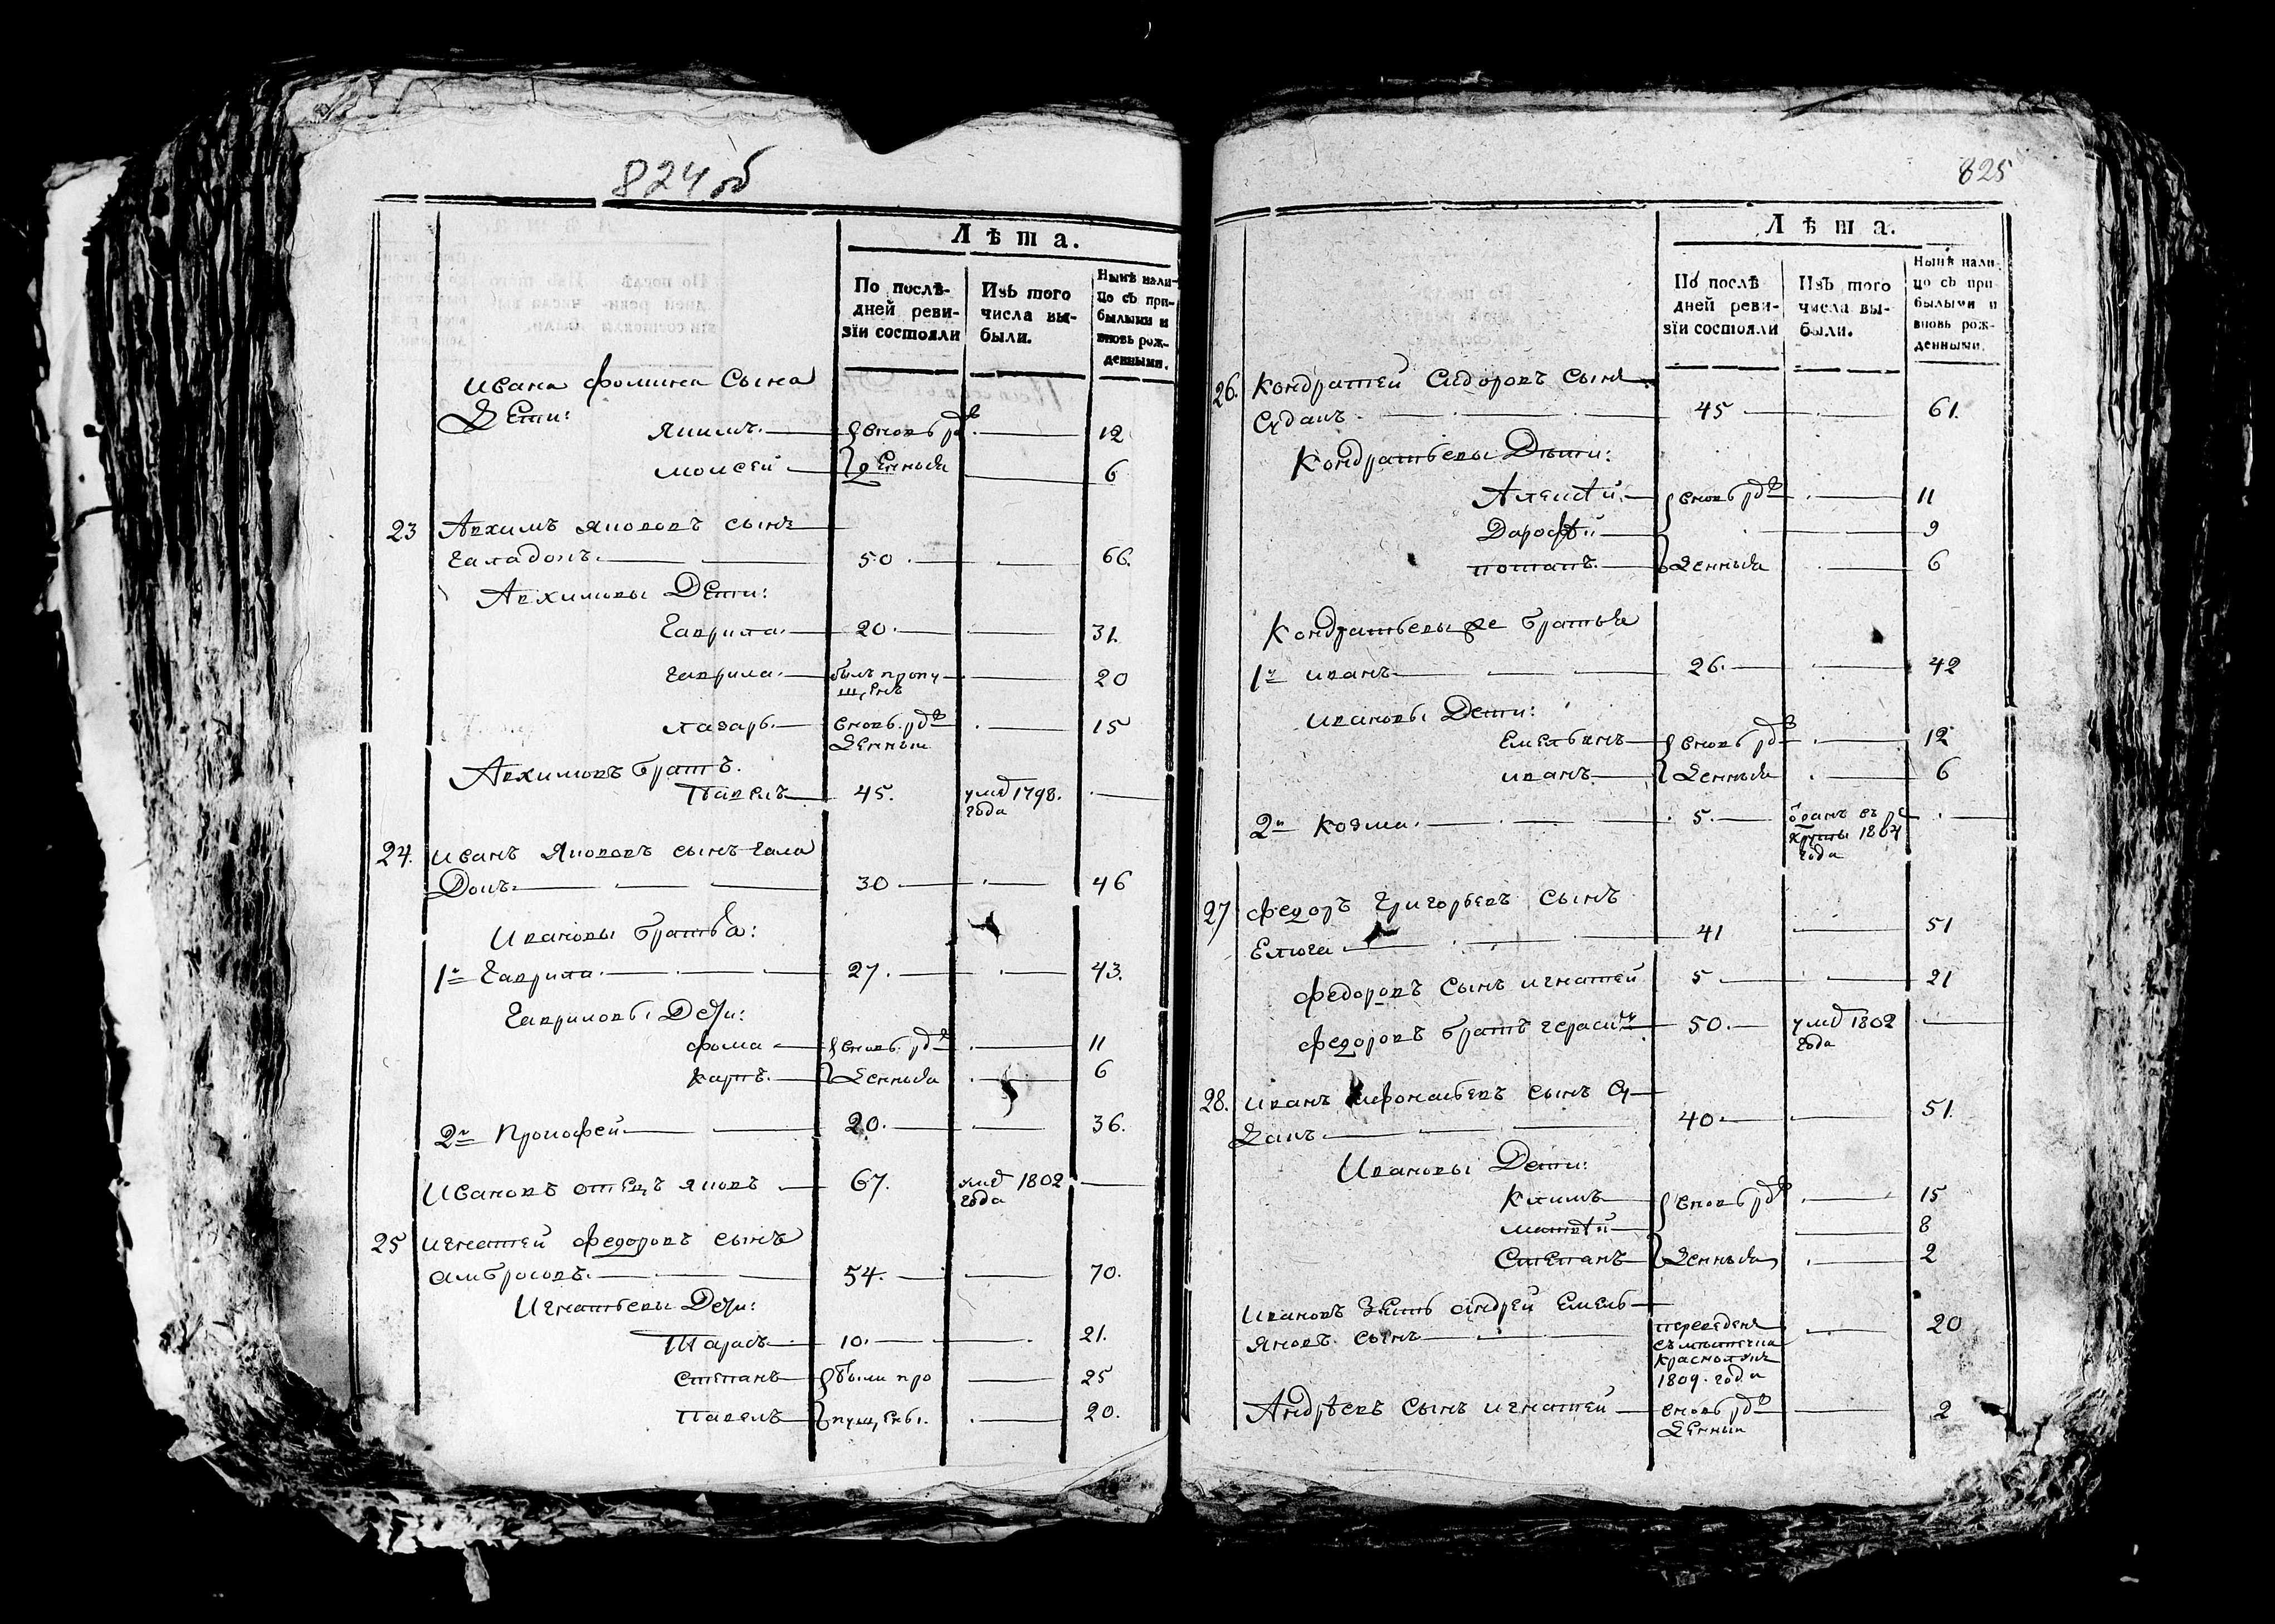 824 об
Лѣта.
По послѣ-
дней реви-
зіи состояли
Изъ того
числа вы-
были.
Нынѣ нали-
цо съ при-
былыми и
вновь рож-
денными.
Ивана Фомина Сына
Дети:
Якимъ вновь рож 12
Моисей денныя 6
23 Авхимъ Яковлевъ сынъ
50 66.
Авхимовы Дети:
Гаврила 20. 31.
Гаврила былъ пропу 20
щенъ
Лазарь вновь рож 15
денный
Авхимовъ братъ
Павелъ 45. умре 1798.
года
24. Иванъ Яковлевъ сынъ Гала
30 46
Ивановы братья:
1й Гаврила 27. 43.
Гавриловы Дети:
Фома вновь рож 11
Карпъ денныя 6
2й Прокофей 20. 36.
Ивановъ отецъ Яковъ 67. умре 1802
года
25 Игнатей Федоровъ сынъ
Амбросовъ 54. 70.
Игнатьевы Дети:
Тарасъ 10. 21.
Степанъ были про 25
Павелъ пущены. 20.
825
Лѣта.
По послѣ
дней реви-
зіи состояли
Изъ того
числа вы-
были.
Нынѣ нали-
цо съ при-
былыми и
вновь рож-
денными.
26. Кондратей Сидоровъ Сынъ
45 61.
Кондратьевы Дѣти:
Алексѣй вновь рож 11
Дарофѣй 9
Потапъ денныя 6
Кондратьевы же братья
1й Иванъ 26. 42
Ивановы Дети:
Емельянъ вновь рож 12
Иванъ денныя 6
2й Козма. 5. отданъ въ ре
круты 1804
года
27 Федоръ Григорьевъ сынъ
41 51
Федоровъ сынъ Игнатей 5 21
Федоровъ братъ Герасимъ 50. умре 1802
года
28. Иванъ Афонасьевъ сынъ Су
40 51.
Ивановы Дети:
Климъ вновь рож 15
Матвѣй 8
Степанъ денныя 2
Ивановъ Зять Андрей Емель
яновъ сынъ переведенъ 20
съ мѣстечка
1809. года
Андрѣевъ сынъ Игнатей вновь рож 2
денный